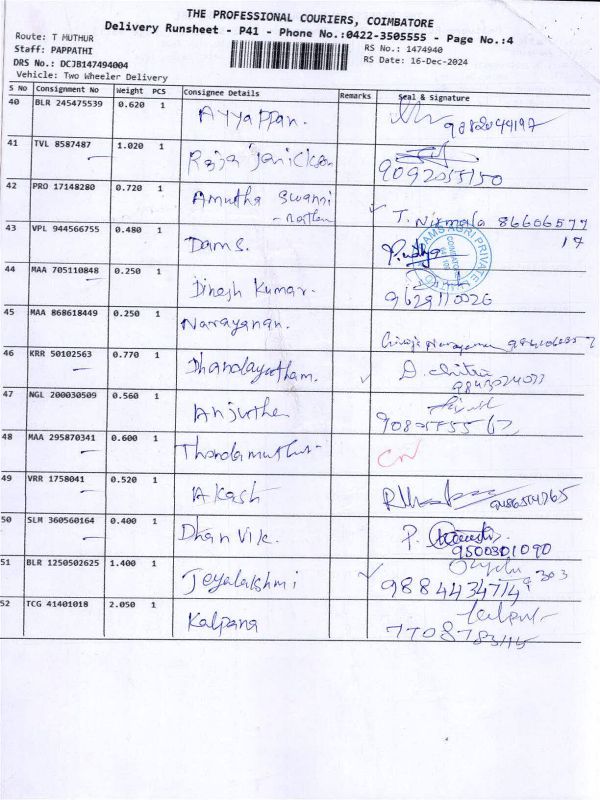 THE PROFESSIONAL COURIERS, COIMBATORE
Delivery Runsheet - P41 - Phone No.:0422-3505555 - Page No.:4
Route: T MUTHUR
Staff: PAPPATHI
RS No.: 1474940
DRS No.: DCJB147494004
RS Date: 16-Dec-2024
Vehicle: Two Wheeler Delivery
S No Consignment No Weight PCS Consignee Details Remarks Seal & Signature
40 BLR 245475539 0.620 1 Ayyappan.
41 TVL 8587487 1.020 1 Raja
9092055150
42 PRO 17148280 0.720 1 Amutha Swami
T. Nirmala 86606577
17
43 VPL 944566755 0.480 1 Dams.
AGRI PRIVATE
44 MAA 705110848 0.250 1 Dinesh Kumar.
9629170026
45 MAA 868618449 0.250 1 Narayanan.
46 KRR 50102563 0.770 1 Dhandayutham. D. Chitra
47 NGL 200030509 0.560 1
48 MAA 295870341 0.600 1 Thondamuthur
49 VRR 1758041 0.520 1 Akash
50 SLM 360560164 0.400 1 Dhanvik. P.
9500301090
51 BLR 1250502625 1.400 1 Jeyalakshmi
52 TCG 41401018 2.050 1 Kalpana